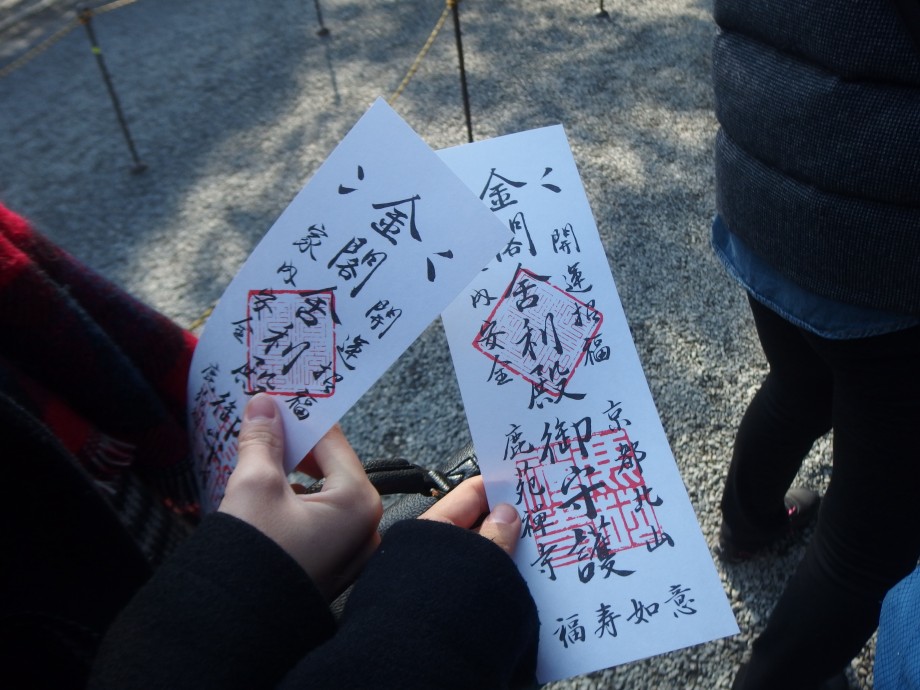 開運招福
金閣舎利殿
家内安全
開運招福
京都北山
金閣舎利殿御守護
内安全
鹿苑禅寺
福寿如意